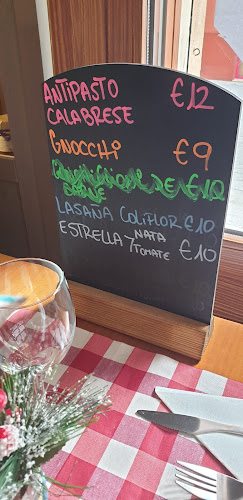 ANTIPASTO €12
CALABRESE
GNOCCHI €9
€10
LASANA COLIFLOR €10
ESTRELLA NATA
TOMATE €10